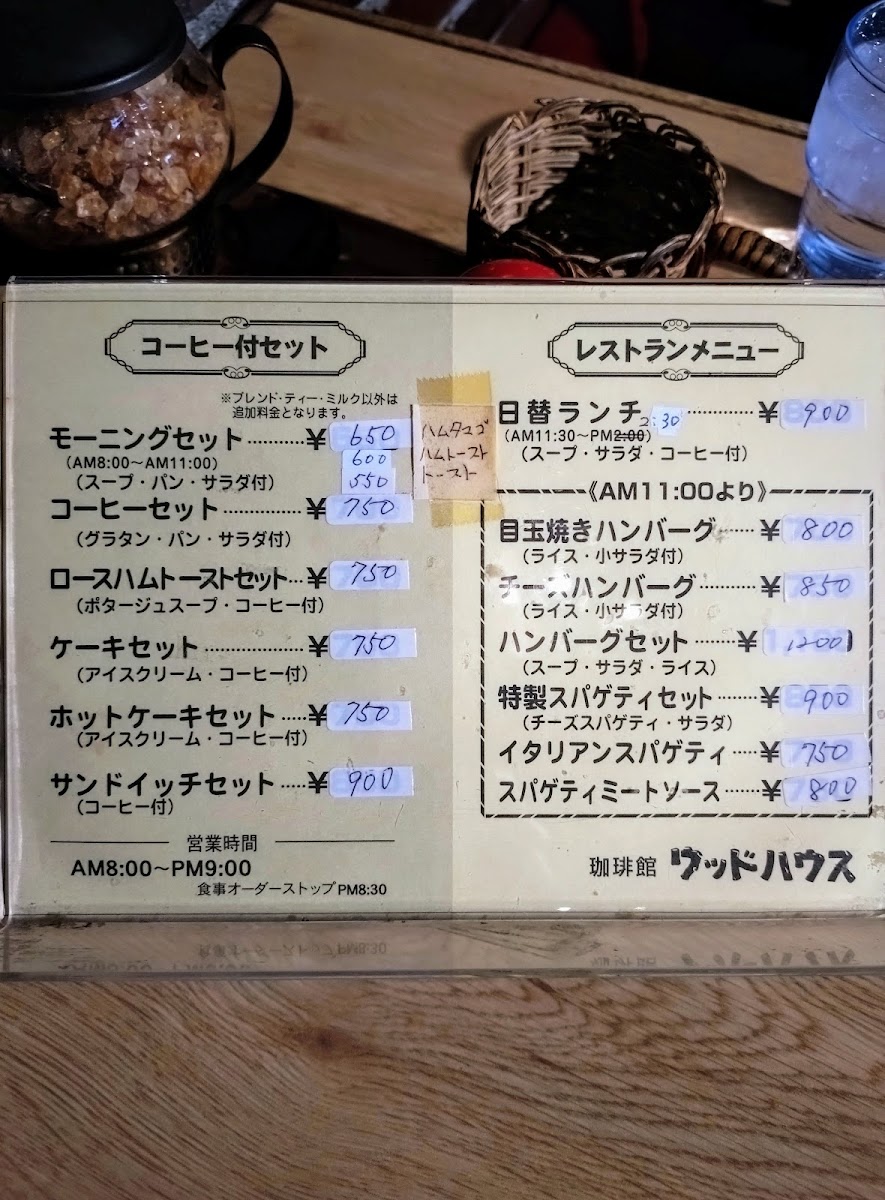 コーヒー付セット
※ブレンド・ティー・ミルク以外は
追加料金となります。
モーニングセット…………¥650 ハムタマゴ
(AM8:00〜AM11:00) 600 ハムトースト
(スープ・パン・サラダ付) 550 トースト
コーヒーセット……………¥750
(グラタン・パン・サラダ付)
ロースハムトーストセット…¥750
(ポタージュスープ・コーヒー付)
ケーキセット………………¥750
(アイスクリーム・コーヒー付)
ホットケーキセット……¥750
(アイスクリーム・コーヒー付)
サンドイッチセット……¥900
(コーヒー付)
営業時間
AM8:00〜PM9:00
食事オーダーストップPM8:30
レストランメニュー
日替ランチ…………¥900
2:30
(AM11:30〜PM2:00)
(スープ・サラダ・コーヒー付)
《AM11:00より》
目玉焼きハンバーグ……¥800
(ライス・小サラダ付)
チーズハンバーグ………¥850
(ライス・小サラダ付)
ハンバーグセット………¥1200
(スープ・サラダ・ライス)
特製スパゲティセット……¥900
(チーズスパゲティ・サラダ)
イタリアンスパゲティ……¥750
スパゲティミートソース……¥800
珈琲館 ウッドハウス